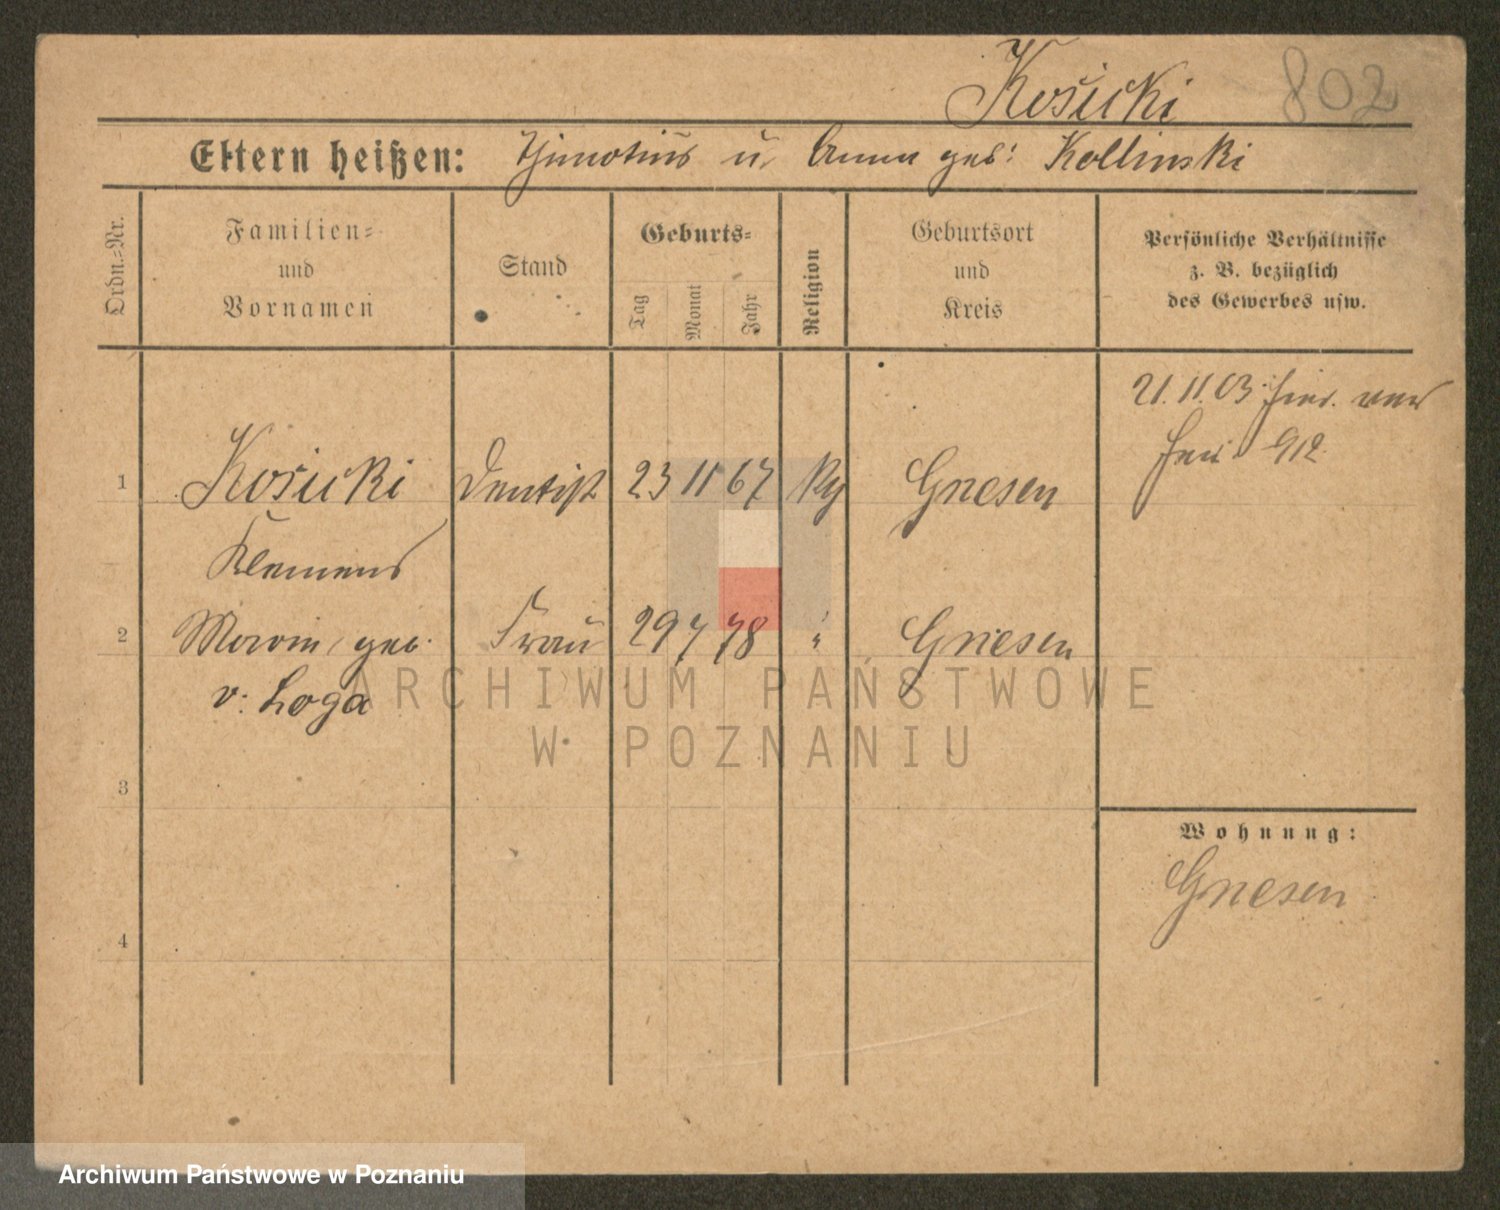 Košicki 802
Eltern heißen: Thimotius u. Anna geb: Kollinski
Ordn.-Nr.
Familien-
und
Vornamen
Stand
Geburts-
Tag
Monat
Jahr
Religion
Geburtsort
und
Kreis
Persönliche Verhältnisse
z. B. bezüglich
des Gewerbes usw.
21.11.03
912
1 Košicki Dentist 23 11 67 Gnesen
Klemens
2 geb. Frau 29 7 78 " Gnesen
v. Loga
3
4
Wohnung:
Gnesen
ARCHIWUM PAŃSTWOWE
W POZNANIU
Archiwum Państwowe w Poznaniu